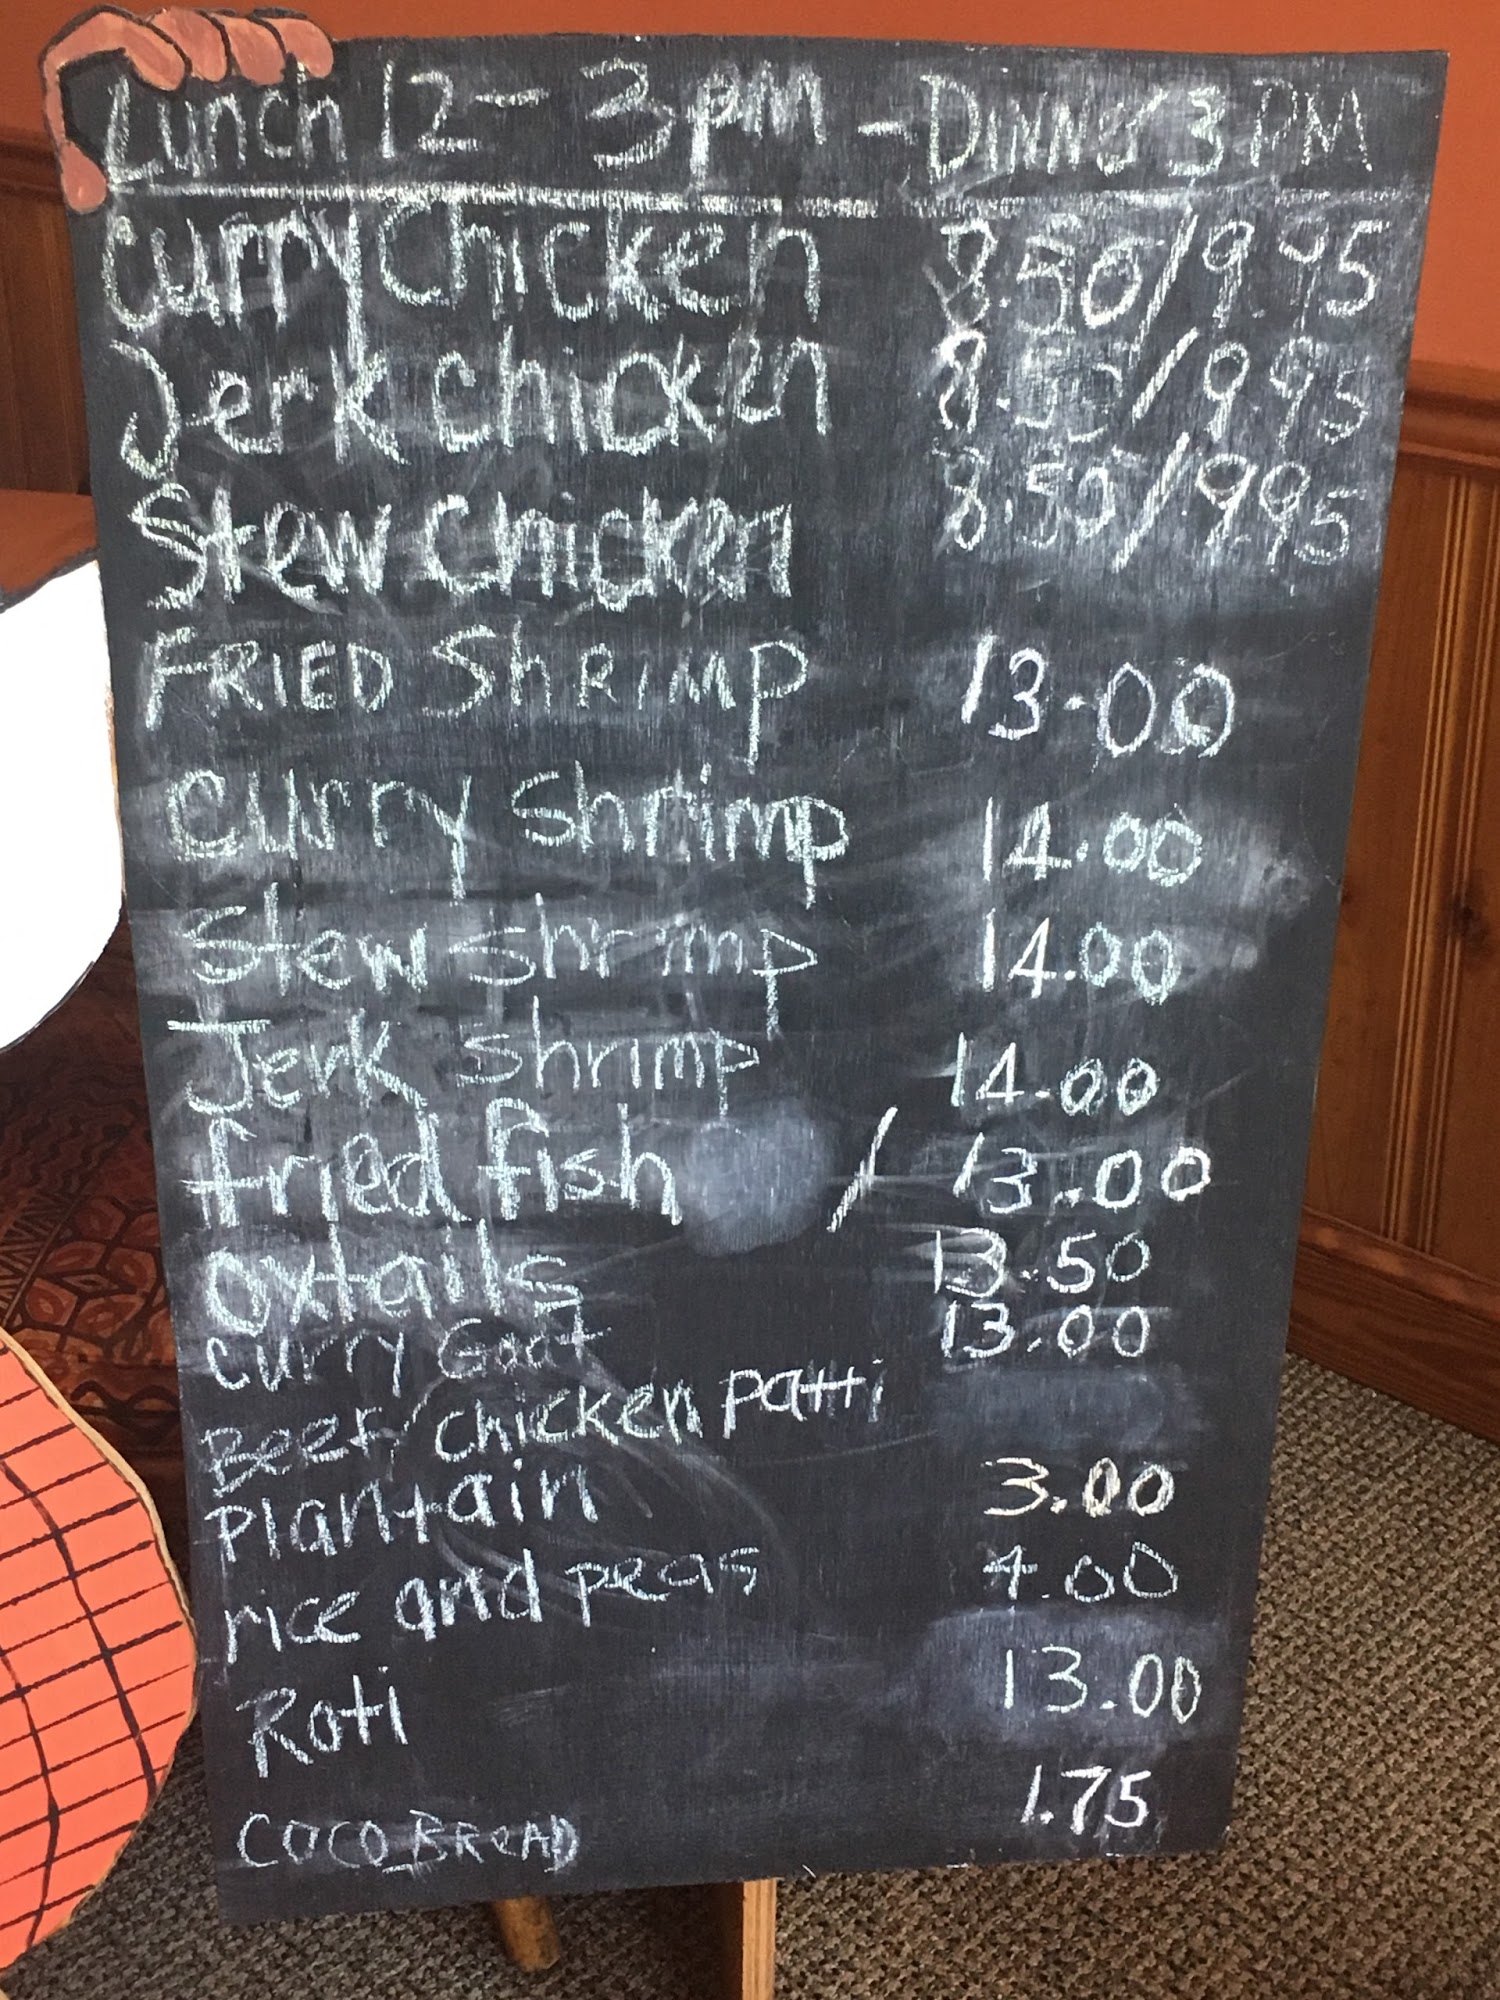 Lunch 12 - 3 pm - DINNER 3 PM
Curry Chicken 8.50/9.95
Jerk chicken 8.50/9.95
Stew Chicken 8.50/9.95
FRIED ShRIMP 13.00
Curry shrimp 14.00
Stew shrimp 14.00
Jerk shrimp 14.00
fried fish / 13.00
oxtails 13.50
curry Goat 13.00
Beef/chicken patti
plantain 3.00
rice and peas 4.00
Roti 13.00
COCO BREAD 1.75